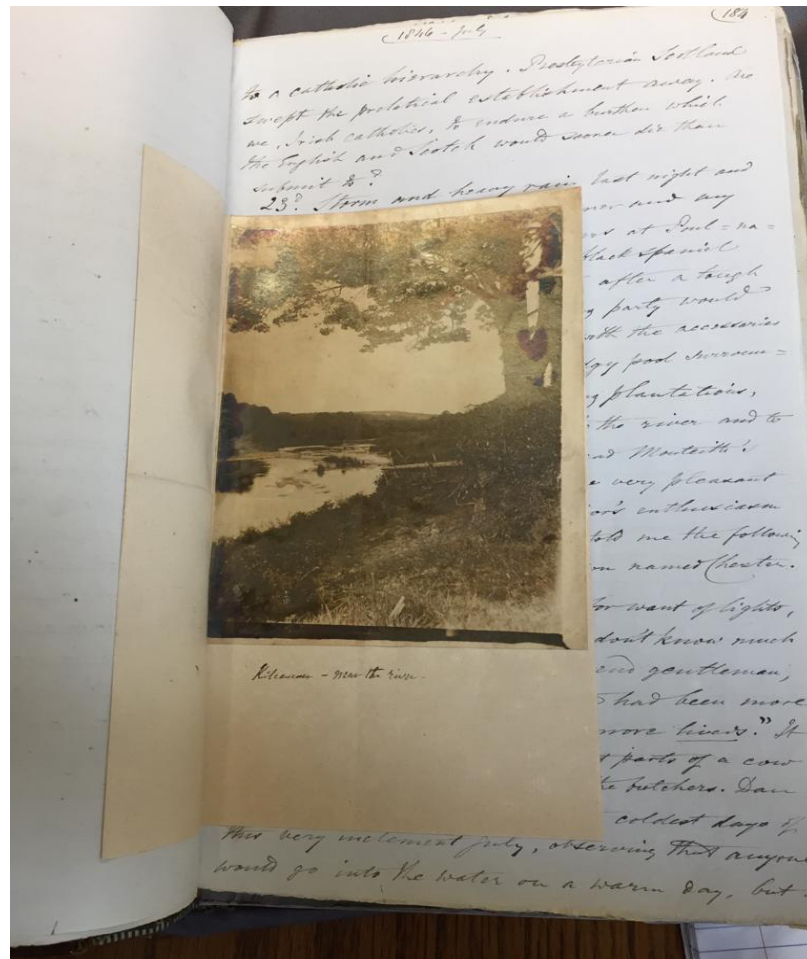 1846 - July
184
to a catholic hierarchy. Presbyterian Scotland
swept the prelatical establishment away. Are
we, Irish catholics, to endure a burthen which
the English and Scotch would sooner die than
submit to?
23d. Storm and heavy rain last night and
and any
at Poul=na=
black spaniel
after a tough
party would
with the accessories
pool surroun=
plantations,
the river and to
and Monteith's
very pleasant
enthusiasm
told me the following
named Chester.
for want of lights,
don't know much
and gentleman,
had been more
more livers." It
parts of a cow
the butchers. Dan
coldest days of
this very inclement July, observing that anyone
would go into the water on a warm day, but
near the river.